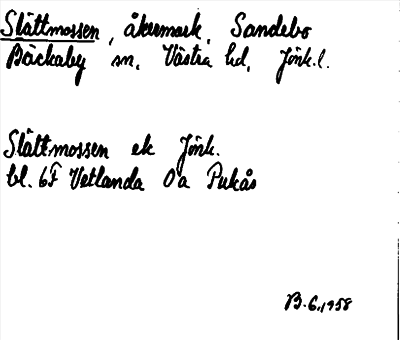 Slåttmossen, åkermark, Sandebo
Bäckaby sn, Västra hd, Jönk.l.
Slåttmossen ek Jönk.
bl. 6F Vetlanda 0a Pukås
B.G.1958